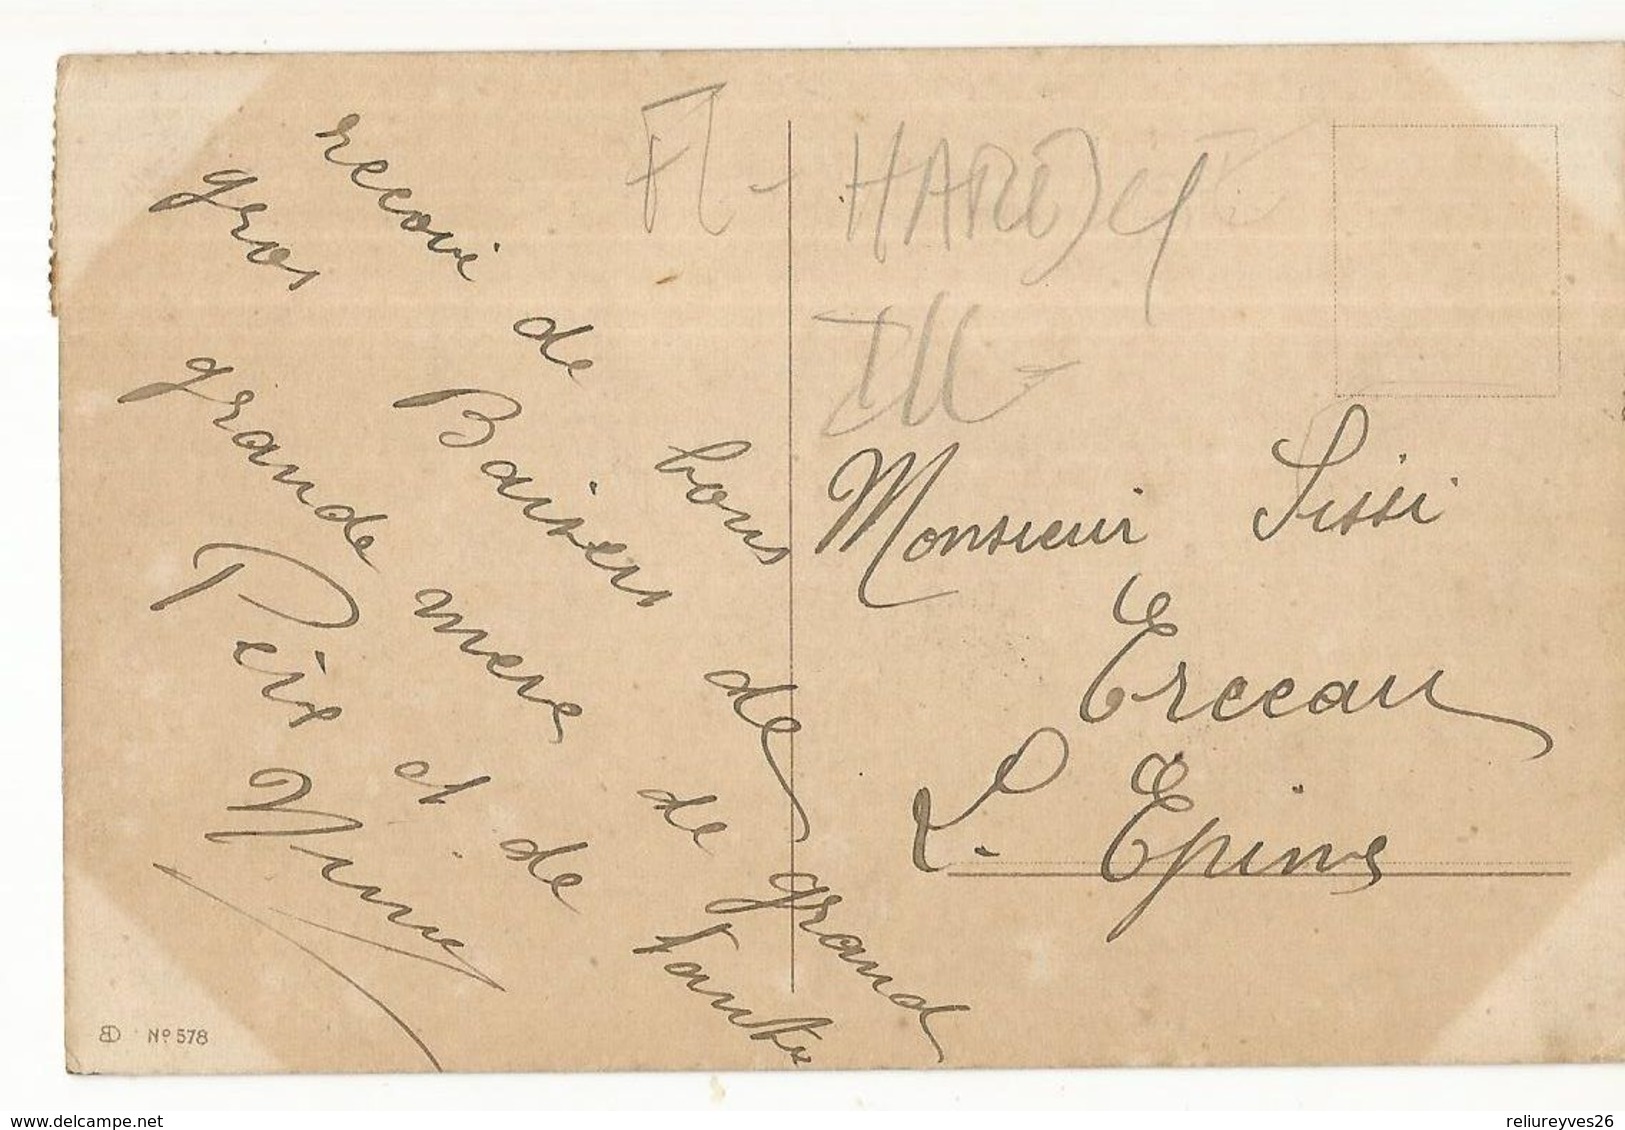 recoui de bons
gros Baisers de grand
grande mere de tante
Peir et de
Ninie
Fl - HARDY
Ill -
Monsieur Sissi
Erceau
L. Epine
BD No 578
reliureyves26